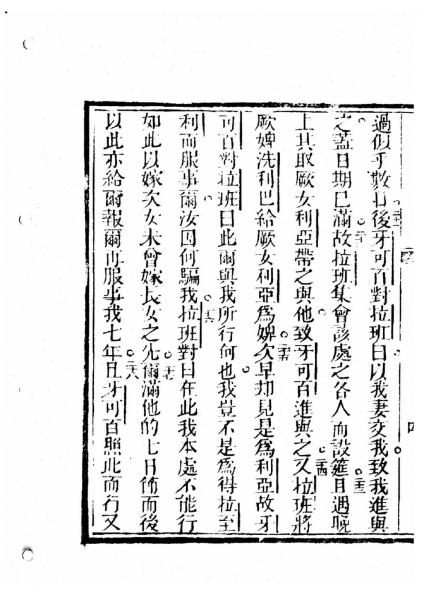 過似乎數日後牙可百對拉班曰以我妻交我致我進與
之蓋日期已滿故拉班集會該處之各人而設筵且遇晚
上其取厥女利亞帶之與他致牙可百進與之又拉班將
厥婢洗利巴給厥女利亞爲婢次早却見是爲利亞故牙
可百對拉班曰此爾與我所行何也我豈不是爲得拉至
利而服事爾汝因何騙我拉班對曰在此我本處不能行
如此以嫁次女未曾嫁長女之先爾滿他的七日信而後
以此亦給爾報爾再服事我七年且牙可百照此而行又
二十
二十二
二十三
二十四
二十五
二十六
二十七
二十八